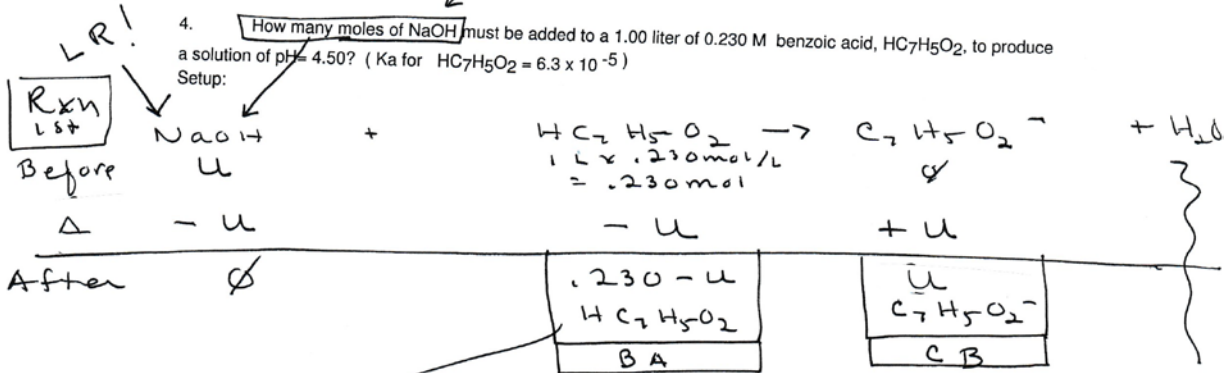 LR!
4. How many moles of NaOH must be added to a 1.00 liter of 0.230 M benzoic acid, HC7H5O2, to produce
a solution of pH= 4.50? ( Ka for HC7H5O2 = 6.3 x 10 -5 )
Setup:
Rxn
1st
NaOH + HC7H5O2 → C7H5O2⁻ + H2O
Before U 1 L x .230mol/L Ø
= .230mol
Δ - U - U + U
After Ø .230 - U U
HC7H5O2 C7H5O2⁻
BA CB